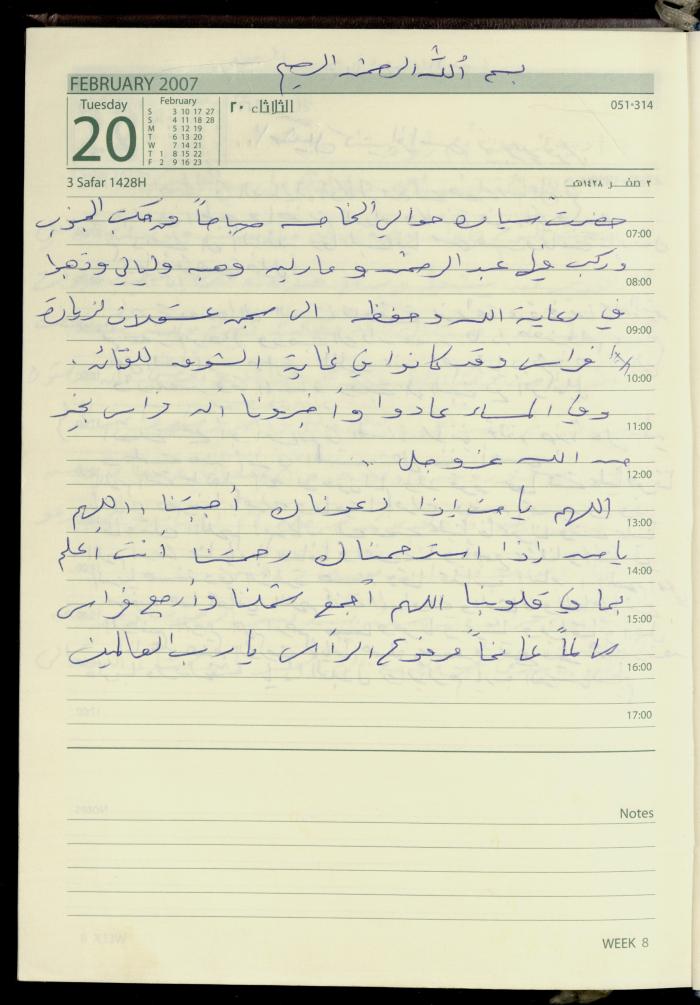 بسم الله الرحمن الرحيم
FEBRUARY 2007
Tuesday
20
February
S 3 10 17 27
S 4 11 18 28
M 5 12 19
T 6 13 20
W 7 14 21
T 1 8 15 22
F 2 9 16 23
الثلاثاء ٢٠
051-314
3 Safar 1428H
٢ صفر ١٤٢٨هـ
حضرت سيارة حوالي الخامسة صباحاً من مكتب
07:00
وركب في عبد الرحمن و مارلين وهبه وليالي وذهبوا
08:00
في رعاية الله وحفظه الى سجن عسقلان لزيارة
09:00
فراس وقد كانوا في غاية الشوق للقائه .
10:00
وفي المساء عادوا وأخبرونا انه فراس بخير
11:00
من الله عز وجل ..
12:00
اللهم يا من إذا دعوناك أجبتنا ، اللهم
13:00
يا من إذا استرحمناك رحمتنا أنت أعلم
14:00
بما في قلوبنا اللهم أجمع شملنا وأرجع فراس
15:00
سالماً غانماً مرفوع الرأس يا رب العالمين
16:00
17:00
Notes
WEEK 8